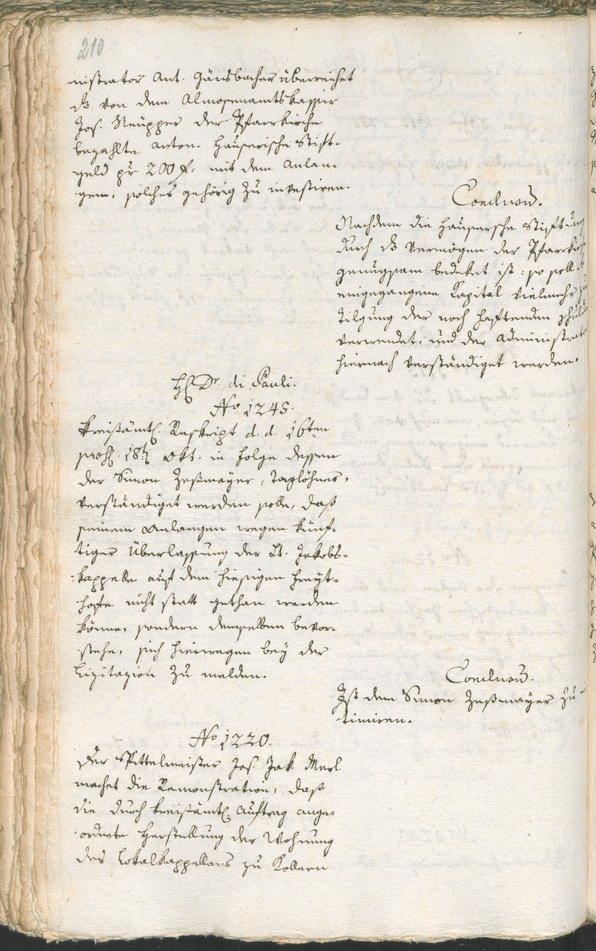 210
nistrator Ant. Gänsbacher überreichet
dß von dem Almosenamtskassier
Jos. Neupper der Pfarrkirche
bezahlte Anton. Hauserische Stift-
geld pr 200 f. mit dem Anlan-
gen, solches gehörig zu investiren.
Conclusum.
Nachdem die Hausersche Stiftung
durch dß Vermögen der Pfarrkirche
genugsam bedeket ist: so solle
eingegangene Kapital vielmehr zu
Tilgung der noch haftenden
verwendet, und der Administrat
hiernach verständiget werden.
H. Dr. di Pauli.
No 1245.
Kreisämtl. Reskript d. d. 16ten
praes. 18. Okt. in Folge dessen
der Simon Zeßmayer, Taglöhner,
verständiget werden solle, daß
seinem Anlangen wegen künf-
tiger Überlassung der St. Jakobs-
kappelle auf dem hiesigen Freyt-
hofe nicht statt gethan werden
könne, sondern demselben bevor
stehe, sich hierwegen bey der
Lizitazion zu melden.
Conclusum.
Ist dem Simon Zeßmayer zu
timiren.
No 1220.
Der Spitlmeister Jos. Jak. Merl
machet die Remonstration, daß
die durch kreisämtl. Auftrag ange-
ordnete Herstellung der Wohnung
des Lokalkappellans zu Kollern